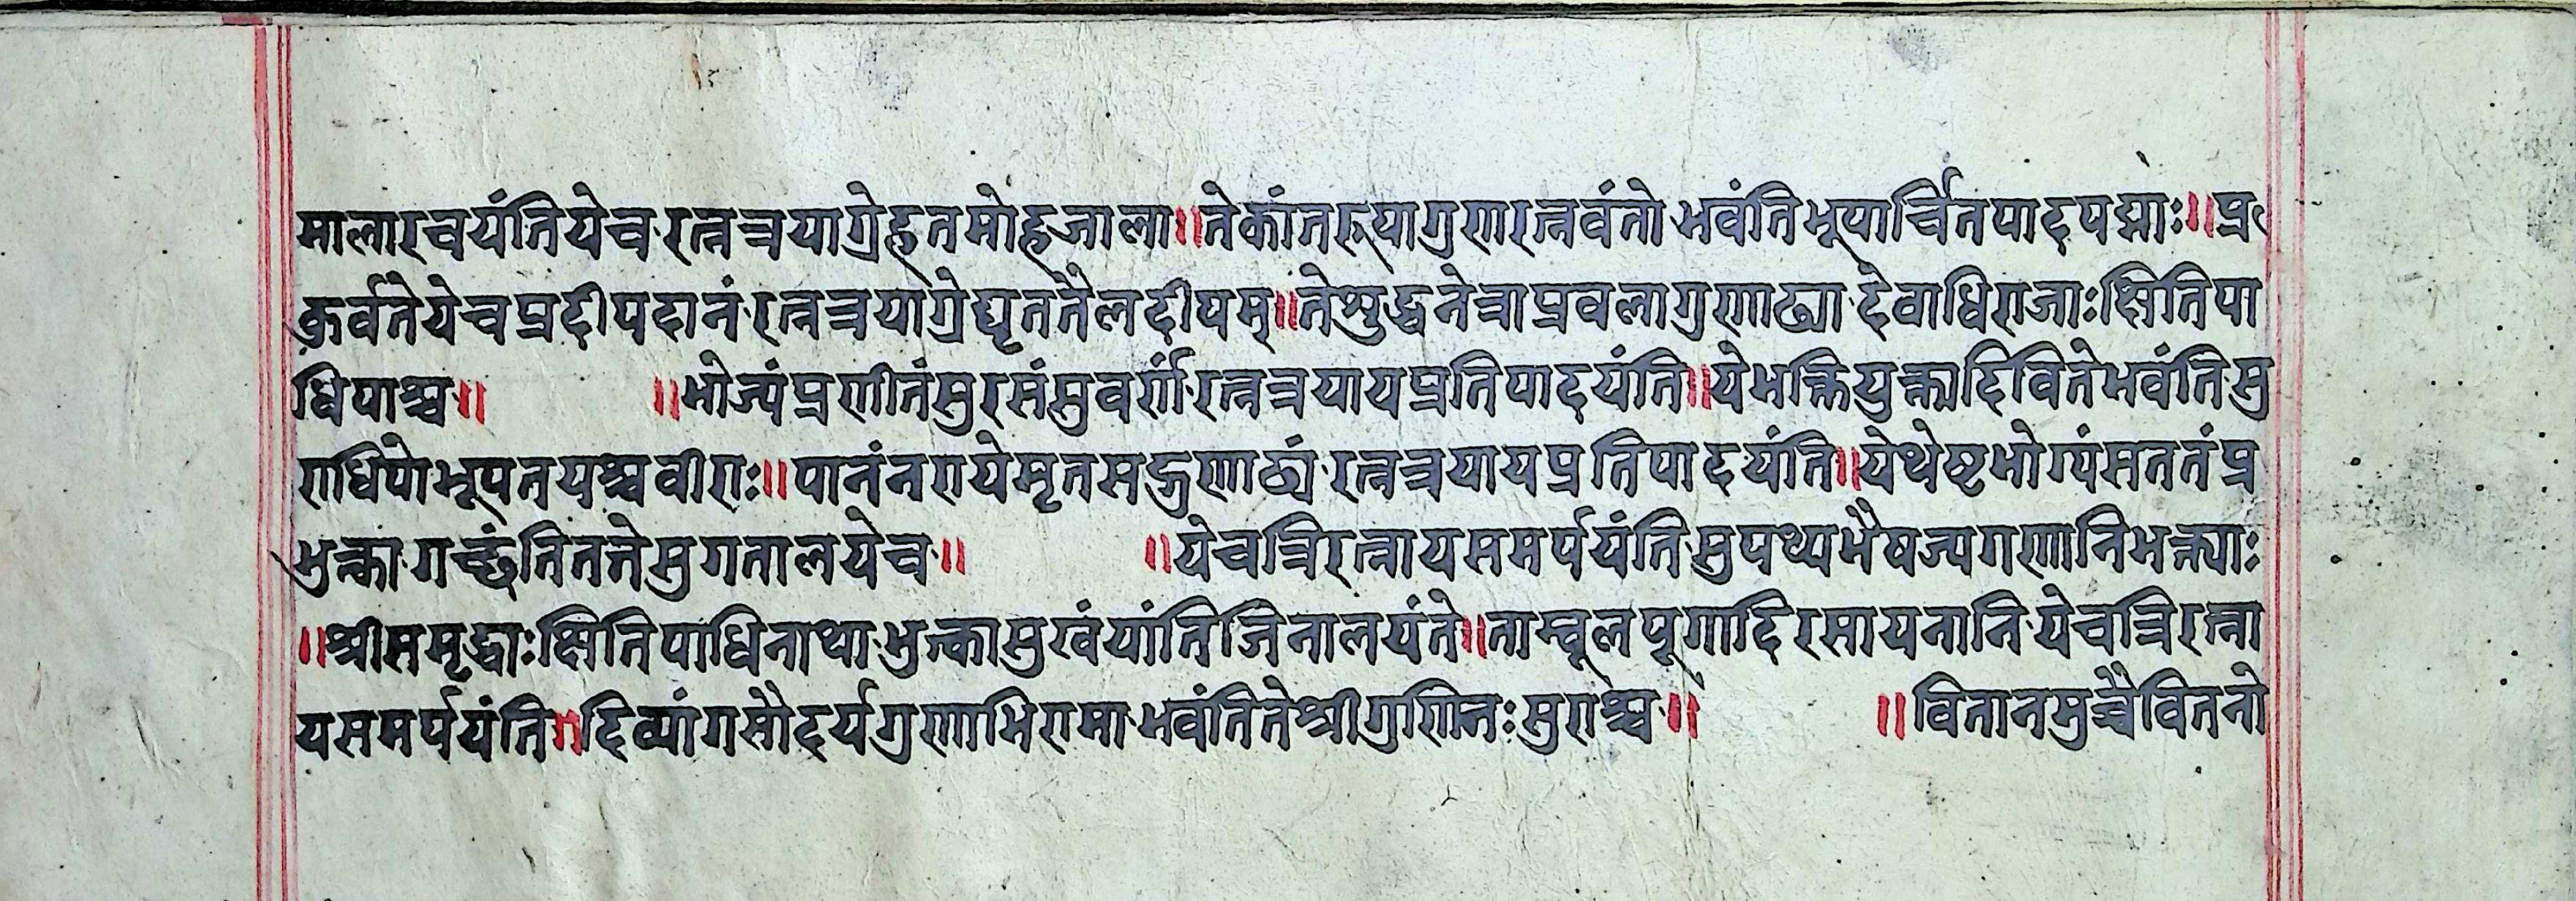 मालारचयंतियेच रत्नत्रयाग्रेहतमोहजाला॥तेकांतरूपागुणरत्नवंतो भवंतिभूपार्चितपादपद्माः॥प्र
कुर्वतेयेचप्रदीपदानं रत्नत्रयाग्रेघृततैलदीपम्॥तेशुद्धनेत्राप्रवलागुणाढ्या देवाधिराजाःक्षितिपा
धिपाश्च॥ ॥भोज्यंप्रणीतंसुरसंसुवर्णं रत्नत्रयायप्रतिपादयंति॥येभक्तियुक्तादिवितेभवंतिसु
राधिपोभूपतयश्चवीराः॥पानंनरायेमृतसद्गुणाढ्यं रत्नत्रयायप्रतिपादयंति॥येथेष्टभोग्यंसततंप्र
भुक्ता गच्छंतिततेसुगतालयेच॥ ॥येचत्रिरत्नायसमर्पयंति सुपथ्यभैषज्यगणानिभक्त्याः
॥श्रीसमृद्धाःक्षितिपाधिनाथा भुक्त्कासुखंयांतिजिनालयंते॥ताम्बूलपूगादिरसायनानि येचत्रिरत्ना
यसमर्पयंति॥दिव्यांगसौदर्यगुणाभिरामा भवंतितेश्रीगुणिनःसुराश्च॥ ॥वितानमुच्चैवितनो